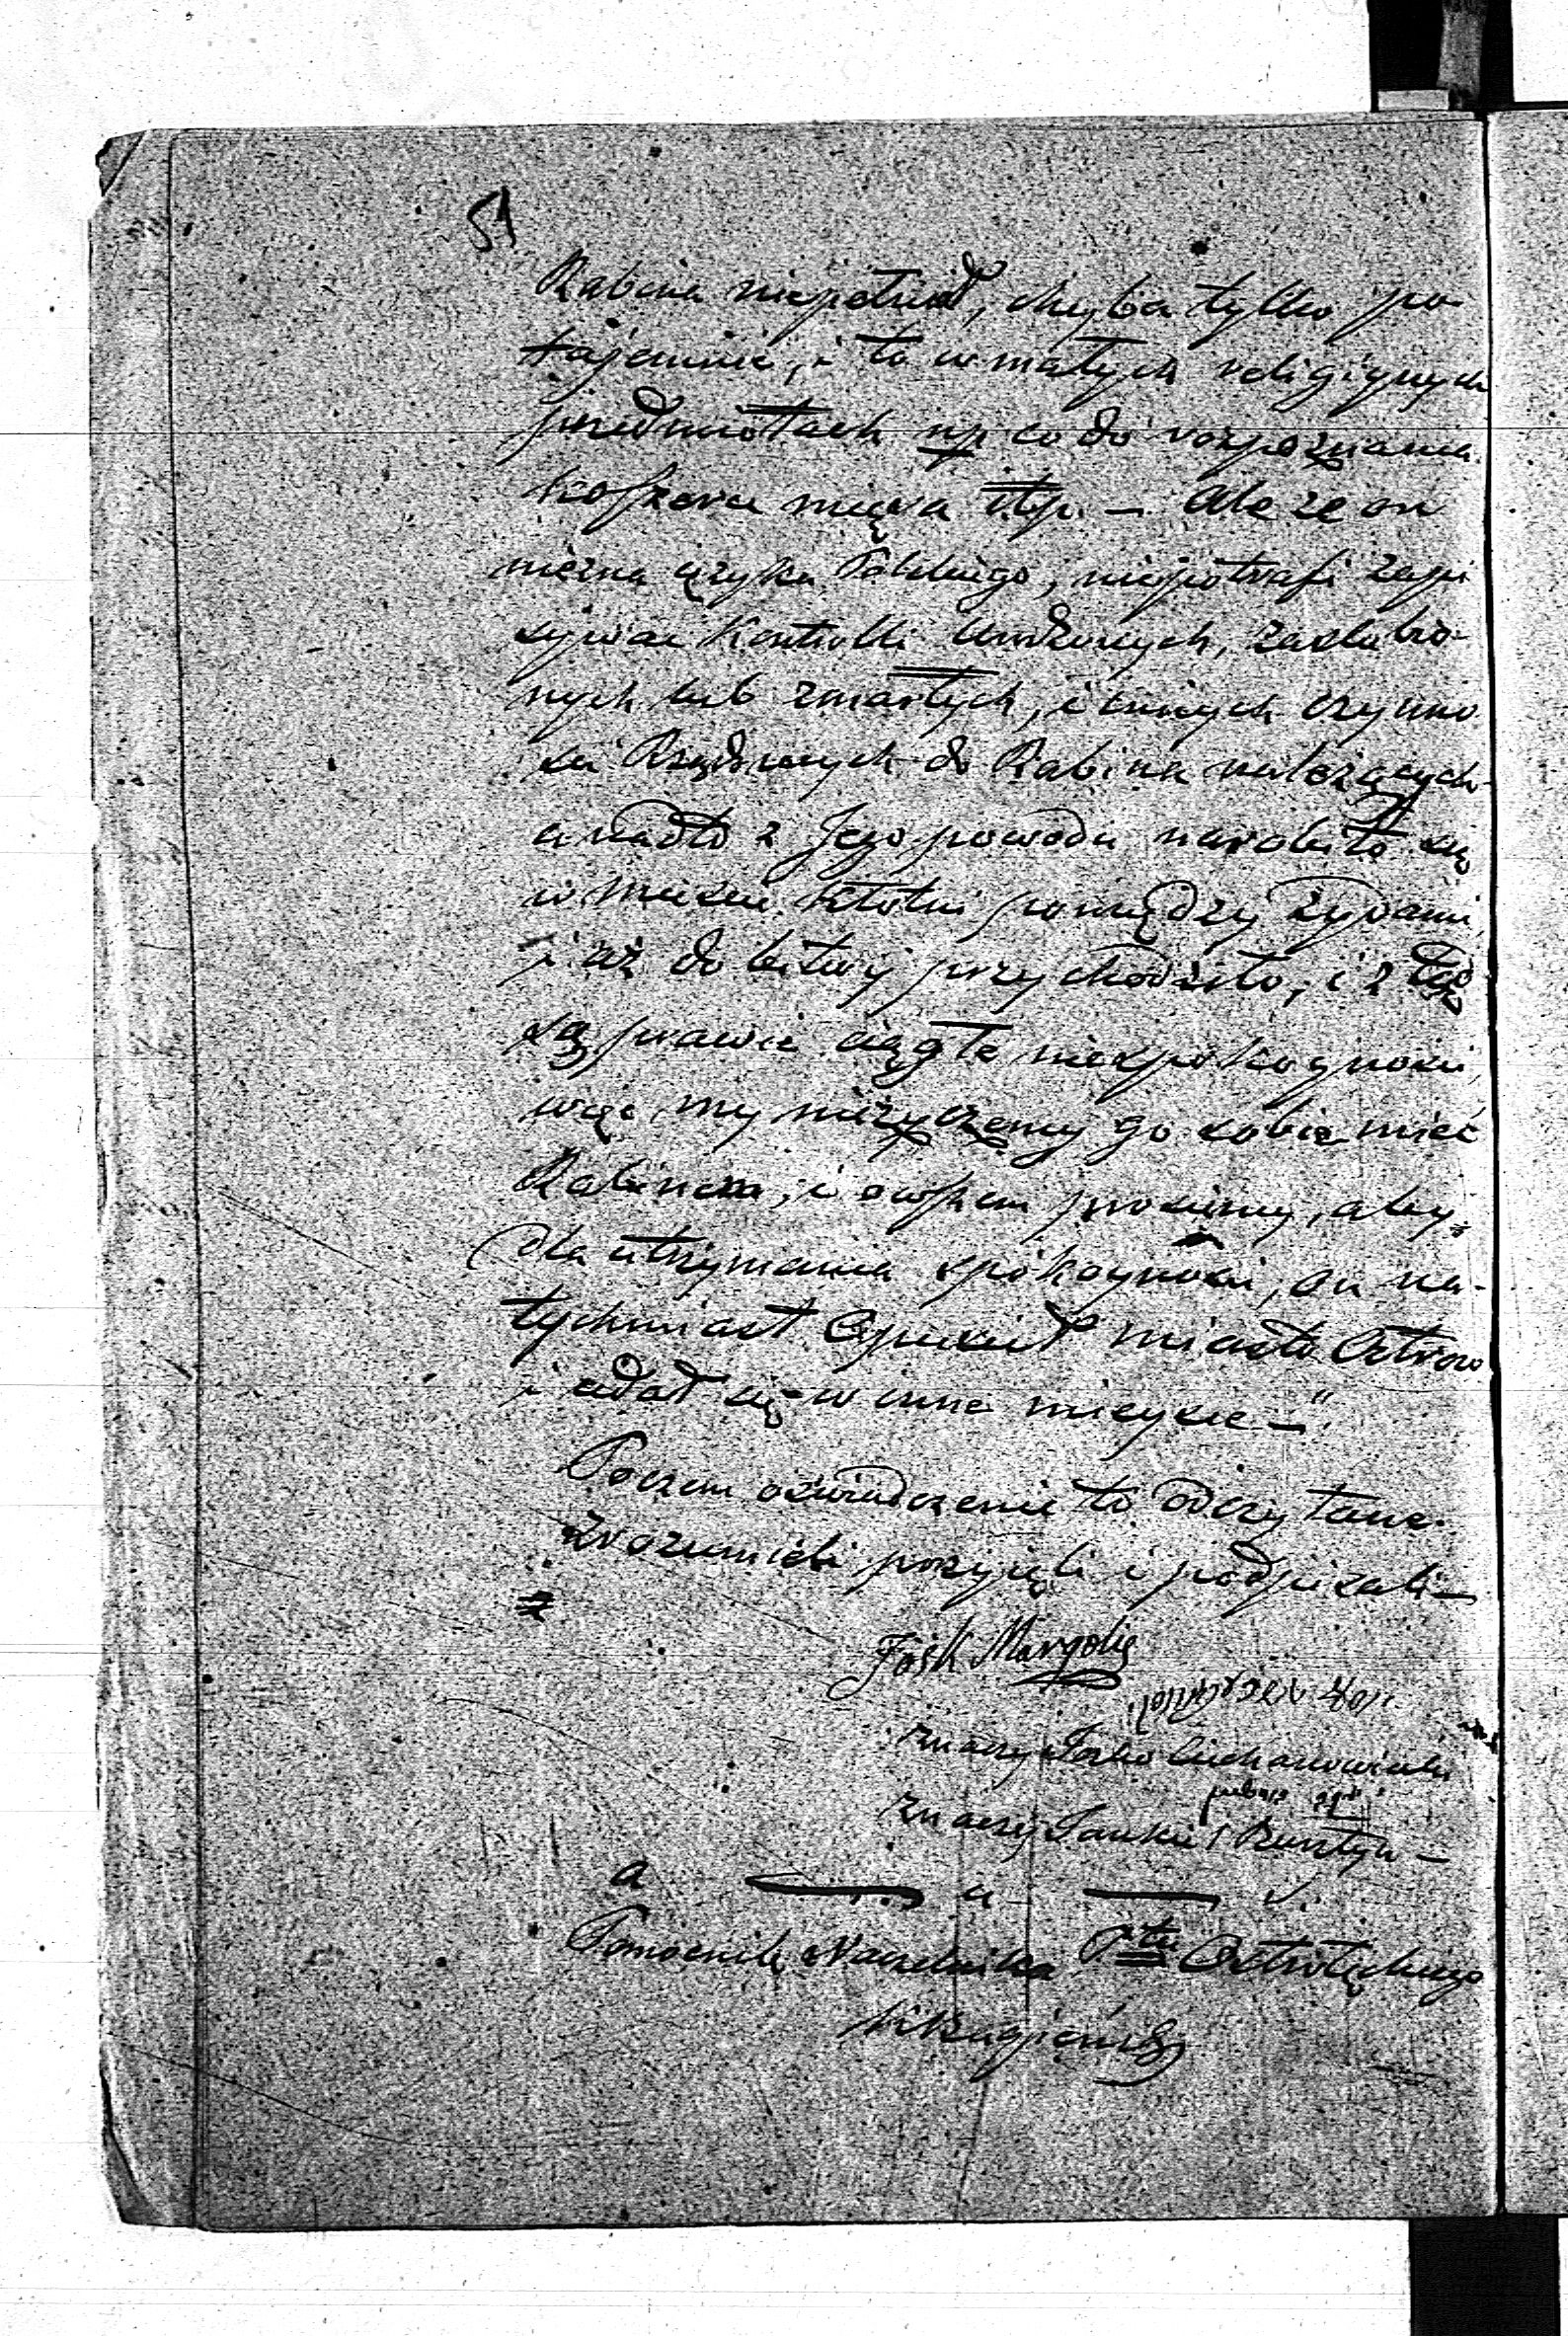 51
Rabina niepełnił, chyba tylko po
tajemnie, i to w małych religijnych
przedmiotach np co do rozpoznania
koszeru mięsa itp. — Ale że on
niezna ięzyka Polskiego, niepotrafi zapi
sywać Kontrolli Urodzonych, zaślubio-
nych lub zmarłych, i innych czynno
ści Rządowych do Rabina należących
a nadto z Jego powodu narobiło się
w mieście kłótni pomiędzy żydami
i aż do bitwy przychodziło, i z tąd
są prawie ciągłe niespokoyności,
więc my nieżyczemy go sobie mieć
Rabinem, i owszem prosiemy, aby
dla utrzymania spokoyności, on na-
tychmiast Opuścił miasto Ostrow
i udał się w inne mieysce — "
Poczem oświadczenie to odczytane
zrozumieli przyięli i podpisali —
Jośk Margolis
znaczy Josko Ciechanowiecki
znaczy Jankiel Bursztyn —
a — a — v.
Pomocnik Naczelnika Ptu Ostrołęckiego